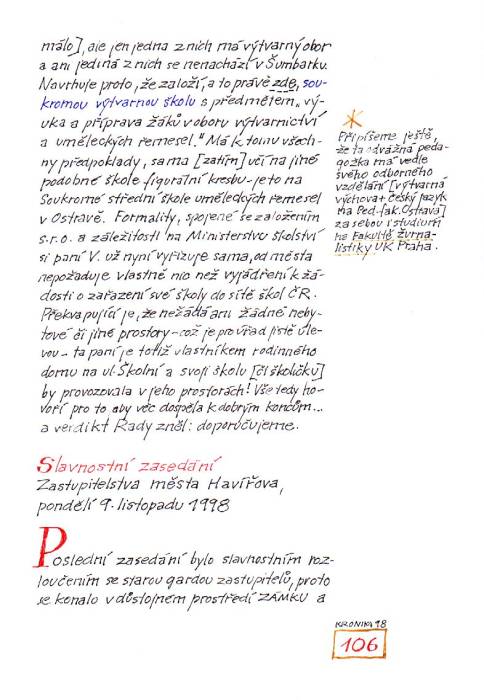 málo], ale jen jedna z nich má výtvarný obor
a ani jediná z nich se nenachází v Šumbarku.
Navrhuje proto, že založí, a to právě zde, sou-
kromou výtvarnou školu s předmětem „vý-
uka a příprava žáků v oboru výtvarnictví
a uměleckých řemesel.“ Má k tomu všech-
ny předpoklady, sama [zatím] učí na jiné
podobné škole figurální kresbu - je to na
Soukromé střední škole uměleckých řemesel
v Ostravě. Formality, spojené se založením
s.r.o. a záležitosti na Ministerstvu školství
si paní V. už nyní vyřizuje sama, od města
nepožaduje vlastně nic než vyjádření k žá-
dosti o zařazení své školy do sítě škol ČR.
Překvapující je, že nežádá ani žádné neby-
tové či jiné prostory - což je pro úřad jistě úle-
vou - ta paní je totiž vlastníkem rodinného
domu na ul. Školní a svoji školu [či školičku]
by provozovala v jeho prostorách! Vše tedy ho-
voří pro to aby věc dospěla k dobrým koncům...
a verdikt Rady zněl: doporučujeme.
*
Připíšeme ještě,
že ta odvážná peda-
gožka má vedle
svého odborného
vzdělání [výtvarná
výchova+český jazyk
na Ped. fak. Ostrava]
za sebou i studium
na Fakultě žurna-
listiky UK Praha.
Slavnostní zasedání
Zastupitelstva města Havířova,
pondělí 9. listopadu 1998
Poslední zasedání bylo slavnostním roz-
loučením se starou gardou zastupitelů, proto
se konalo v důstojném prostředí ZÁMKU a
KRONIKA 98
106